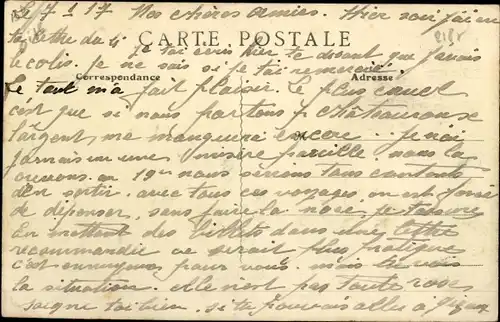 Le 7 1 17 Mes chères amies. Hier soir j'ai eu
ta lettre du 4 je t'ai écris hier te disant que j'avais
CARTE POSTALE
le colis. je ne sais si je t'ai remercié.
Correspondance
Adresse
Le tout m'a fait plaisir. Le plus cruel
c'est que si nous partons p Châteauroux
l'argent, me manquera encore .. je n'ai
jamais vu une misère pareille nous la
crevons. en 19 nous serions tous contents
d'en sortir. avec tous ces voyages, on est forcé
de dépenser, sans faire la noce, je t'assure
En mettant des billets dans une lettre
recommandée ce serait plus pratique
c'est ennuyeux pour vous. mais tu vois
la situation. elle n'est pas toute rose
soigne toi bien. si tu pouvais aller a